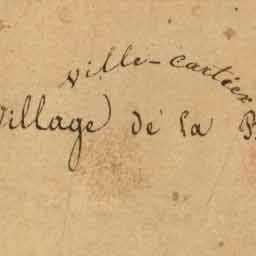 ville-cartier
Village de la